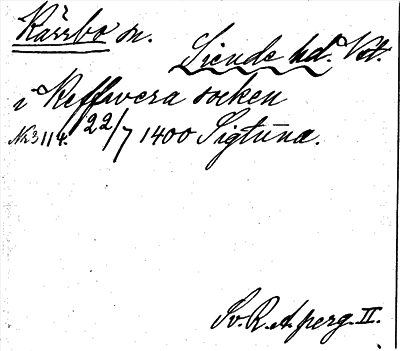 Kärrbo sn.
Siende hd. Vst.
i Keffwera socken
Nr 3114. 22/7 1400 Sigtuna.
Sv. R. A. perg. II.